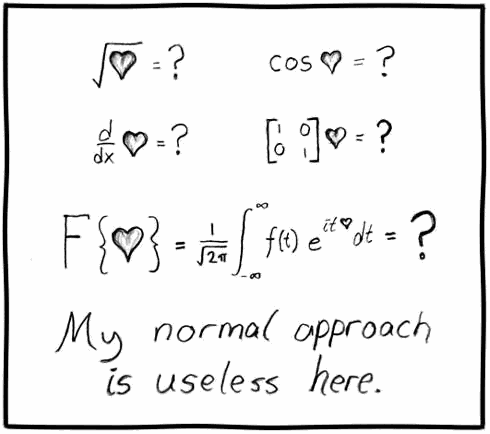 √♥ = ?
cos ♥ = ?
d/dx ♥ = ?
[1 0
0 1] ♥ = ?
F{♥} = 1/√2π ∫_{-∞}^{∞} f(t) e^{it♥} dt = ?
My normal approach
is useless here.